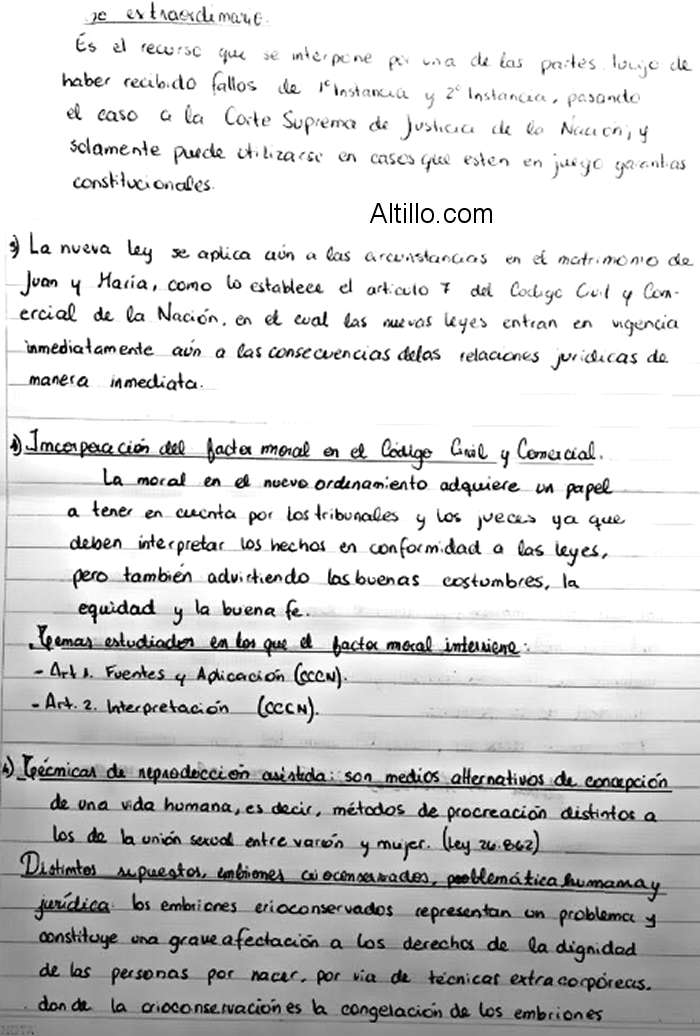 extraordinario.
Es el recurso que se interpone por una de las partes luego de
haber recibido fallos de 1º Instancia y 2º Instancia, pasando
el caso a la Corte Suprema de Justicia de la Nación, y
solamente puede utilizarse en casos que esten en juego garantias
constitucionales.
Altillo.com
3) La nueva ley se aplica aún a las circunstancias en el matrimonio de
Juan y María, como lo establece el articulo 7 del Codigo Civil y Com-
ercial de la Nación, en el cual las nuevas leyes entran en vigencia
inmediatamente aún a las consecuencias de las relaciones juridicas de
manera inmediata.
Incorporación del factor moral en el Código Civil y Comercial.
La moral en el nuevo ordenamiento adquiere un papel
a tener en cuenta por los tribunales y los jueces ya que
deben interpretar los hechos en conformidad a las leyes,
pero también advirtiendo las buenas costumbres, la
equidad y la buena fe.
Temas estudiados en los que el factor moral interviene:
- Art 1. Fuentes y Aplicación (CCCN).
- Art. 2. Interpretación (CCCN).
Técnicas de reproducción asistida: son medios alternativos de concepción
de una vida humana, es decir, métodos de procreación distintos a
los de la unión sexual entre varón y mujer. (Ley 26.862)
Distintos supuestos, embriones crioconservados, problemática humana y
jurídica: los embriones crioconservados representan un problema y
constituye una grave afectación a los derechos de la dignidad
de las personas por nacer, por via de técnicas extracorpóreas.
donde la crioconservación es la congelación de los embriones